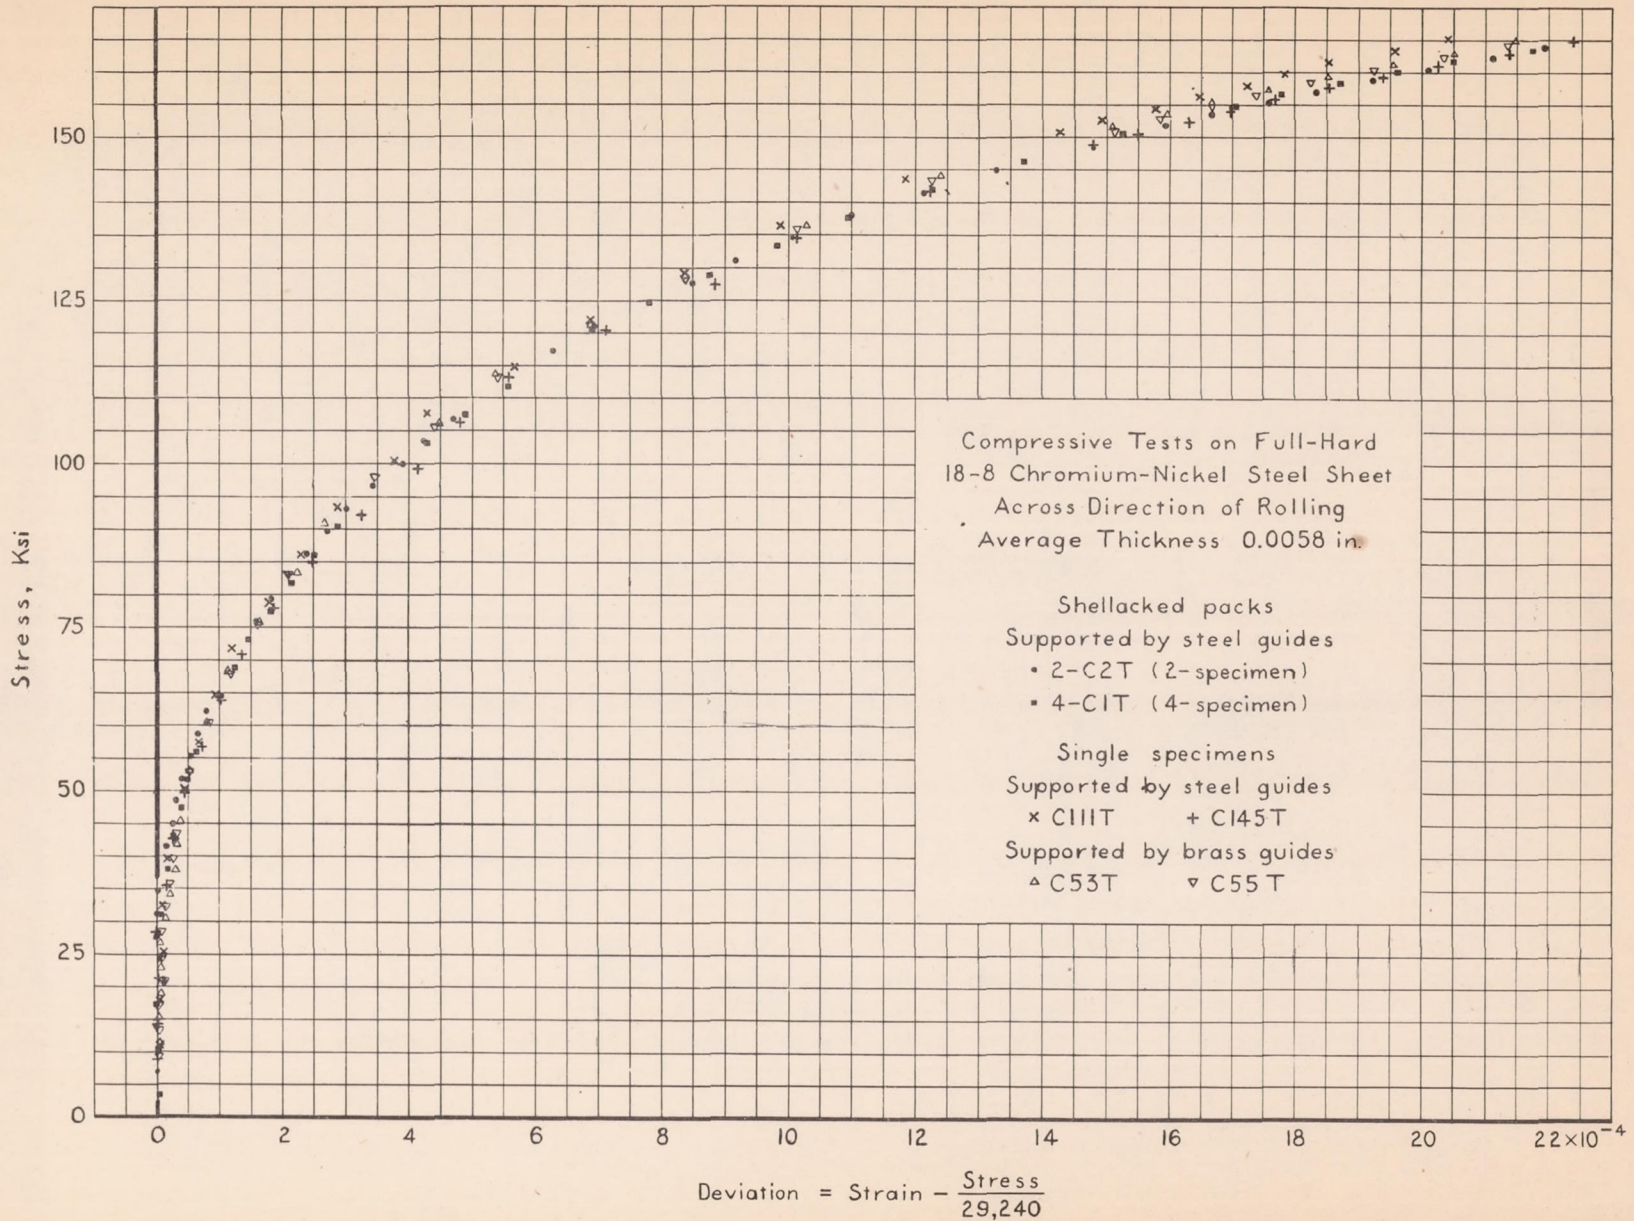 150
125
100
75
50
25
0
Stress, Ksi
Compressive Tests on Full-Hard
18-8 Chromium-Nickel Steel Sheet
Across Direction of Rolling
Average Thickness 0.0058 in.
Shellacked packs
Supported by steel guides
• 2-C2T (2-specimen)
▪ 4-C1T (4-specimen)
Single specimens
Supported by steel guides
× C111T + C145T
Supported by brass guides
△ C53T ▽ C55T
0 2 4 6 8 10 12 14 16 18 20 22×10⁻⁴
Deviation = Strain − Stress
29,240